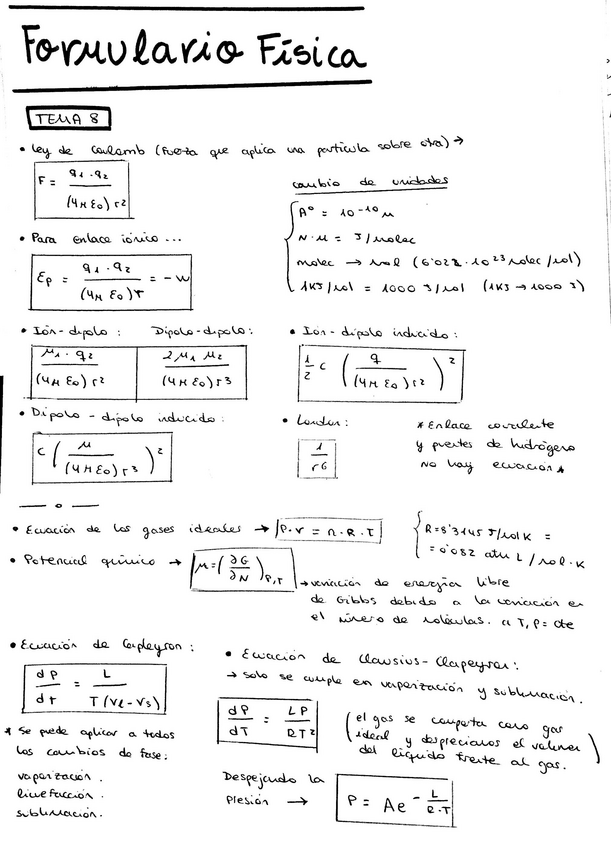 Formulario Física
TEMA 8
• Ley de Coulomb (Fuerza que aplica una partícula sobre otra) →
F = q1·q2 / (4π ε0) r²
cambio de unidades
Aº = 10⁻¹⁰ m
N·m = J/molec
molec → mol (6'022·10²³ molec/mol)
1KJ/mol = 1000 J/mol (1KJ → 1000 J)
• Para enlace iónico...
Ep = q1·q2 / (4π ε0) r = -W
• Ión-dipolo: Dipolo-dipolo:
μ1·q2 / (4π ε0) r² 2μ1 μ2 / (4π ε0) r3
• Ión-dipolo inducido:
1/2 C ( q / (4π ε0) r² )²
• Dipolo-dipolo inducido:
C ( μ / (4π ε0) r3 )²
• London:
1 / r6
* Enlace covalente
y puentes de hidrógeno
no hay ecuación *
— o —
• Ecuación de los gases ideales → P·V = n·R·T
R=8'3145 J/mol K =
= 0'082 atm L / mol·K
• Potencial químico → μ = (∂G / ∂N)P,T
→ variación de energía libre
de Gibbs debido a la variación en
el número de moléculas. a T, P = cte
• Ecuación de Clapeyron:
dP / dt = L / T(Vl - Vs)
* Se puede aplicar a todos
los cambios de fase:
vaporización.
licuefacción.
sublimación.
• Ecuación de Clausius-Clapeyron:
→ solo se cumple en vaporización y sublimación.
dP / dT = LP / RT²
(el gas se comporta como gas
ideal y despreciamos el volumen
del líquido frente al gas.)
Despejando la
Presión → P = Ae^(- L / R·T)